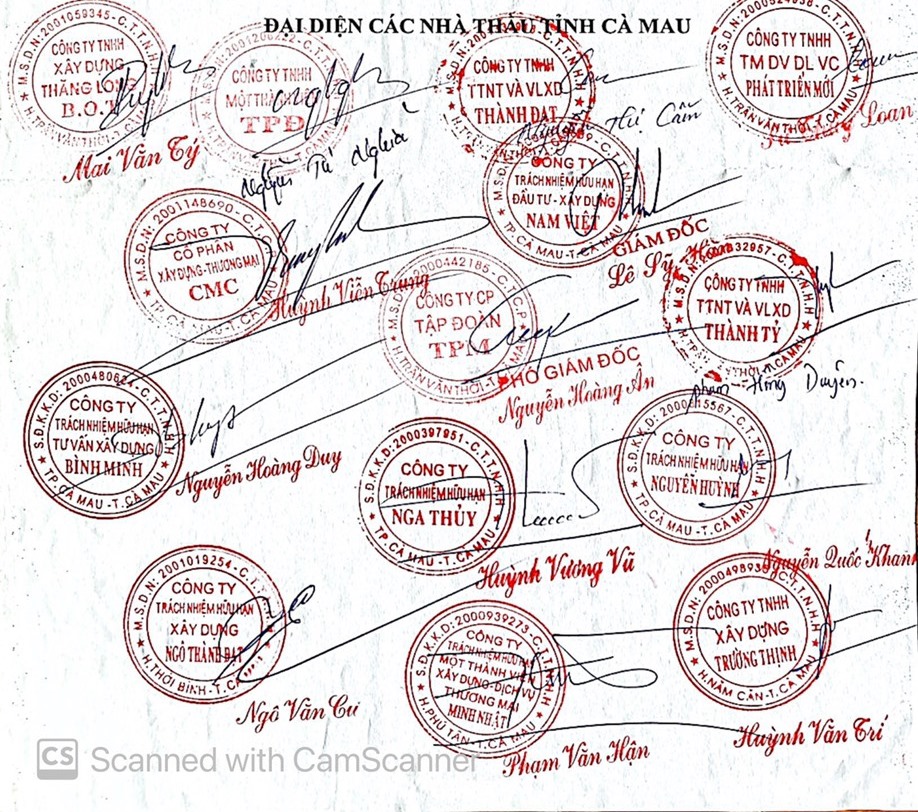 ĐẠI DIỆN CÁC NHÀ THẦU TỈNH CÀ MAU
M.S.D.N: 2001059345 - C.T.T.N.H.H
CÔNG TY TNHH
XÂY DỰNG
THĂNG LONG
B.O.T
H.TRẦN VĂN THỜI-T.CÀ MAU
Mai Văn Tý
CÔNG TY TNHH
MỘT THÀNH VIÊN
TPĐ
H.TRẦN VĂN THỜI-T.CÀ MAU
CÔNG TY TNHH
TTNT VÀ VLXD
THÀNH ĐẠT
CÔNG TY TNHH
TM DV DL VC
PHÁT TRIỂN MỚI
H.TRẦN VĂN THỜI-T.CÀ MAU
Loan
M.S.D.N: 2001148690 - C
CÔNG TY
CỔ PHẦN
XÂY DỰNG-THƯƠNG MẠI
CMC
TP.CÀ MAU-T.CÀ MAU
Huỳnh Viễn Trung
CÔNG TY
TRÁCH NHIỆM HỮU HẠN
ĐẦU TƯ - XÂY DỰNG
NAM VIỆT
TP.CÀ MAU-T.CÀ MAU
GIÁM ĐỐC
Lê Sỹ
2000442185 - C.T.C.P
CÔNG TY CP
TẬP ĐOÀN
TPM
H.TRẦN VĂN THỜI-T.
PHÓ GIÁM ĐỐC
Nguyễn Hoàng Ân
CÔNG TY TNHH
TTNT VÀ VLXD
THÀNH TỶ
Phạm Hồng Duyên.
S.Đ.K.K.D: 2000480624 - C.T.T.N.H.H
CÔNG TY
TRÁCH NHIỆM HỮU HẠN
TƯ VẤN XÂY DỰNG
BÌNH MINH
TP.CÀ MAU-T.CÀ MAU
Nguyễn Hoàng Duy
S.Đ.K.K.D: 2000397951 - C.T.T.N.H.H
CÔNG TY
TRÁCH NHIỆM HỮU HẠN
NGA THỦY
TP.CÀ MAU-T.CÀ MAU
Huỳnh Vương Vũ
CÔNG TY
TRÁCH NHIỆM HỮU HẠN
NGUYỄN HUỲNH
TP.CÀ MAU-T.CÀ MAU
Nguyễn Quốc Khanh
M.S.D.N: 2001019254 - C.T.
CÔNG TY
TRÁCH NHIỆM HỮU HẠN
XÂY DỰNG
NGÔ THÀNH ĐẠT
H.THỚI BÌNH-T.
Ngô Văn Cư
S.Đ.K.K.D: 2000939273 - C.T.T.N.H.H
CÔNG TY
TRÁCH NHIỆM HỮU HẠN
MỘT THÀNH VIÊN
XÂY DỰNG-DỊCH VỤ
THƯƠNG MẠI
MINH NHẬT
H.PHÚ TÂN-T.CÀ MAU
Phạm Văn Hận
CÔNG TY TNHH
XÂY DỰNG
TRƯỜNG THỊNH
H.NĂM CĂN-T.CÀ MAU
Huỳnh Văn Trí
CS Scanned with CamScanner